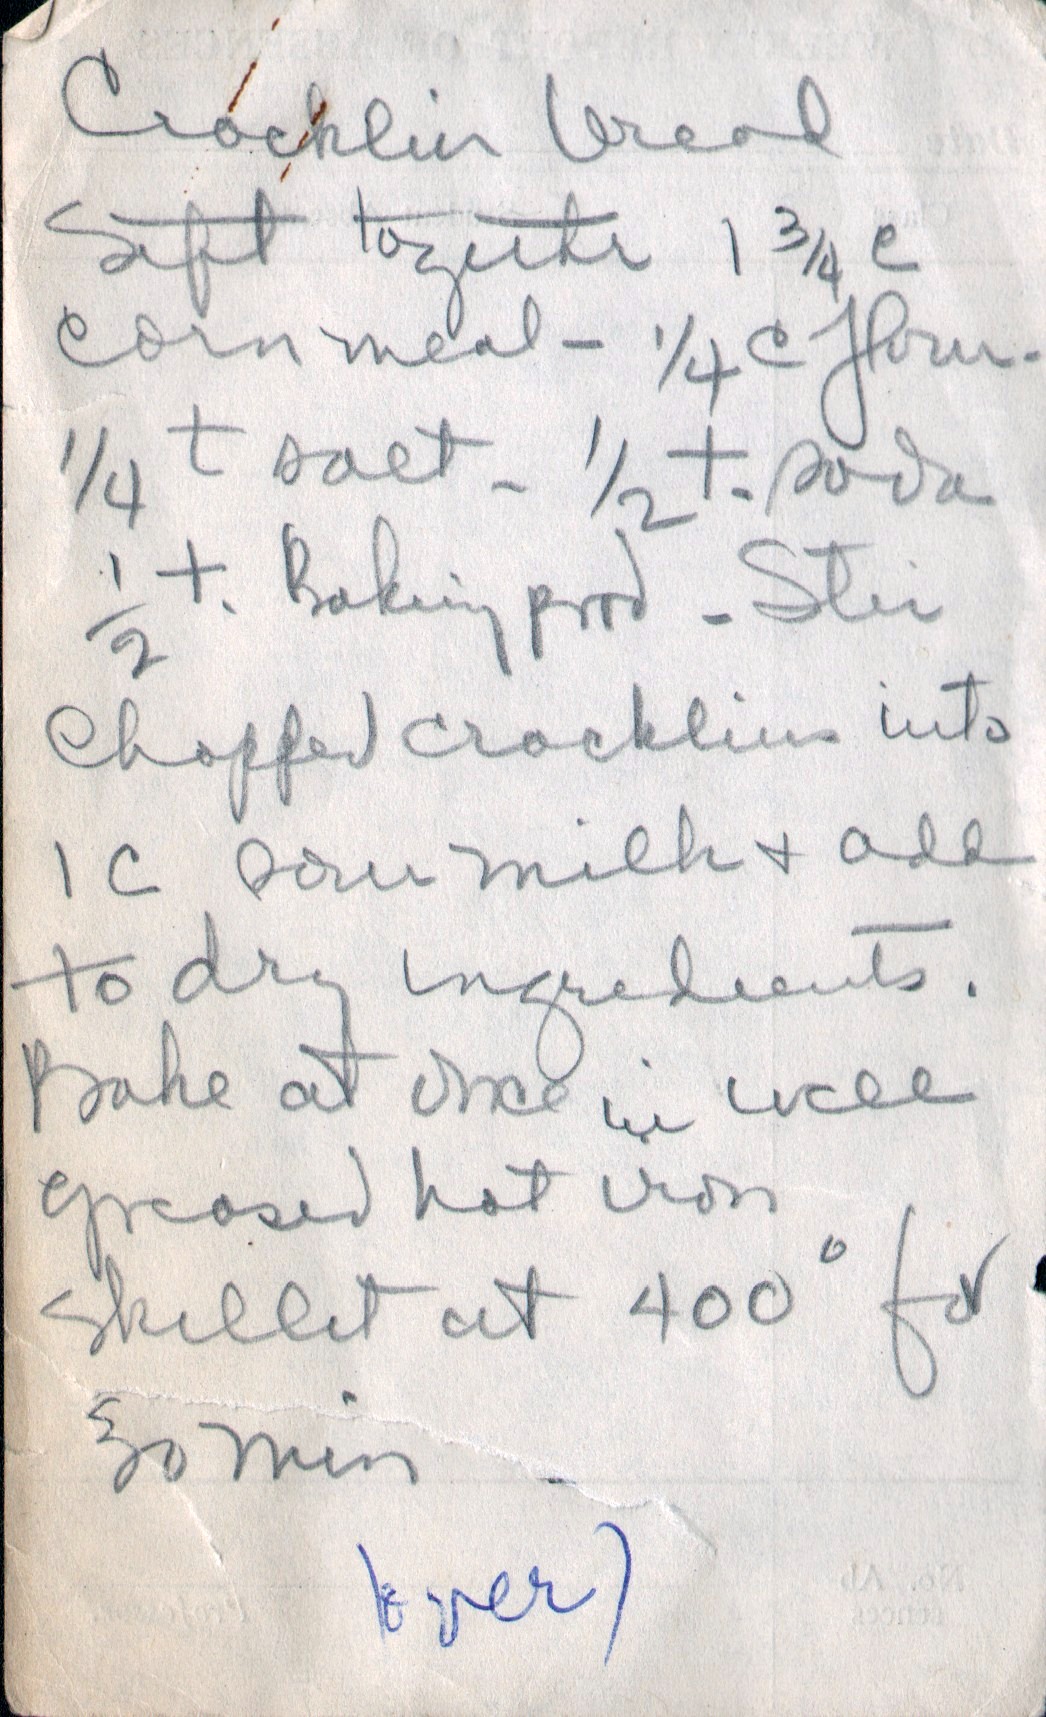 Cracklin bread
Sift together 1 3/4 c
corn meal - 1/4 c flour.
1/4 t salt - 1/2 t. soda
1/2 t. Baking powd - Stir
Chopped cracklins into
1 C sour milk + add
to dry ingredients.
Bake at once in well
greased hot iron
skillet at 400° for
30 min
(over)